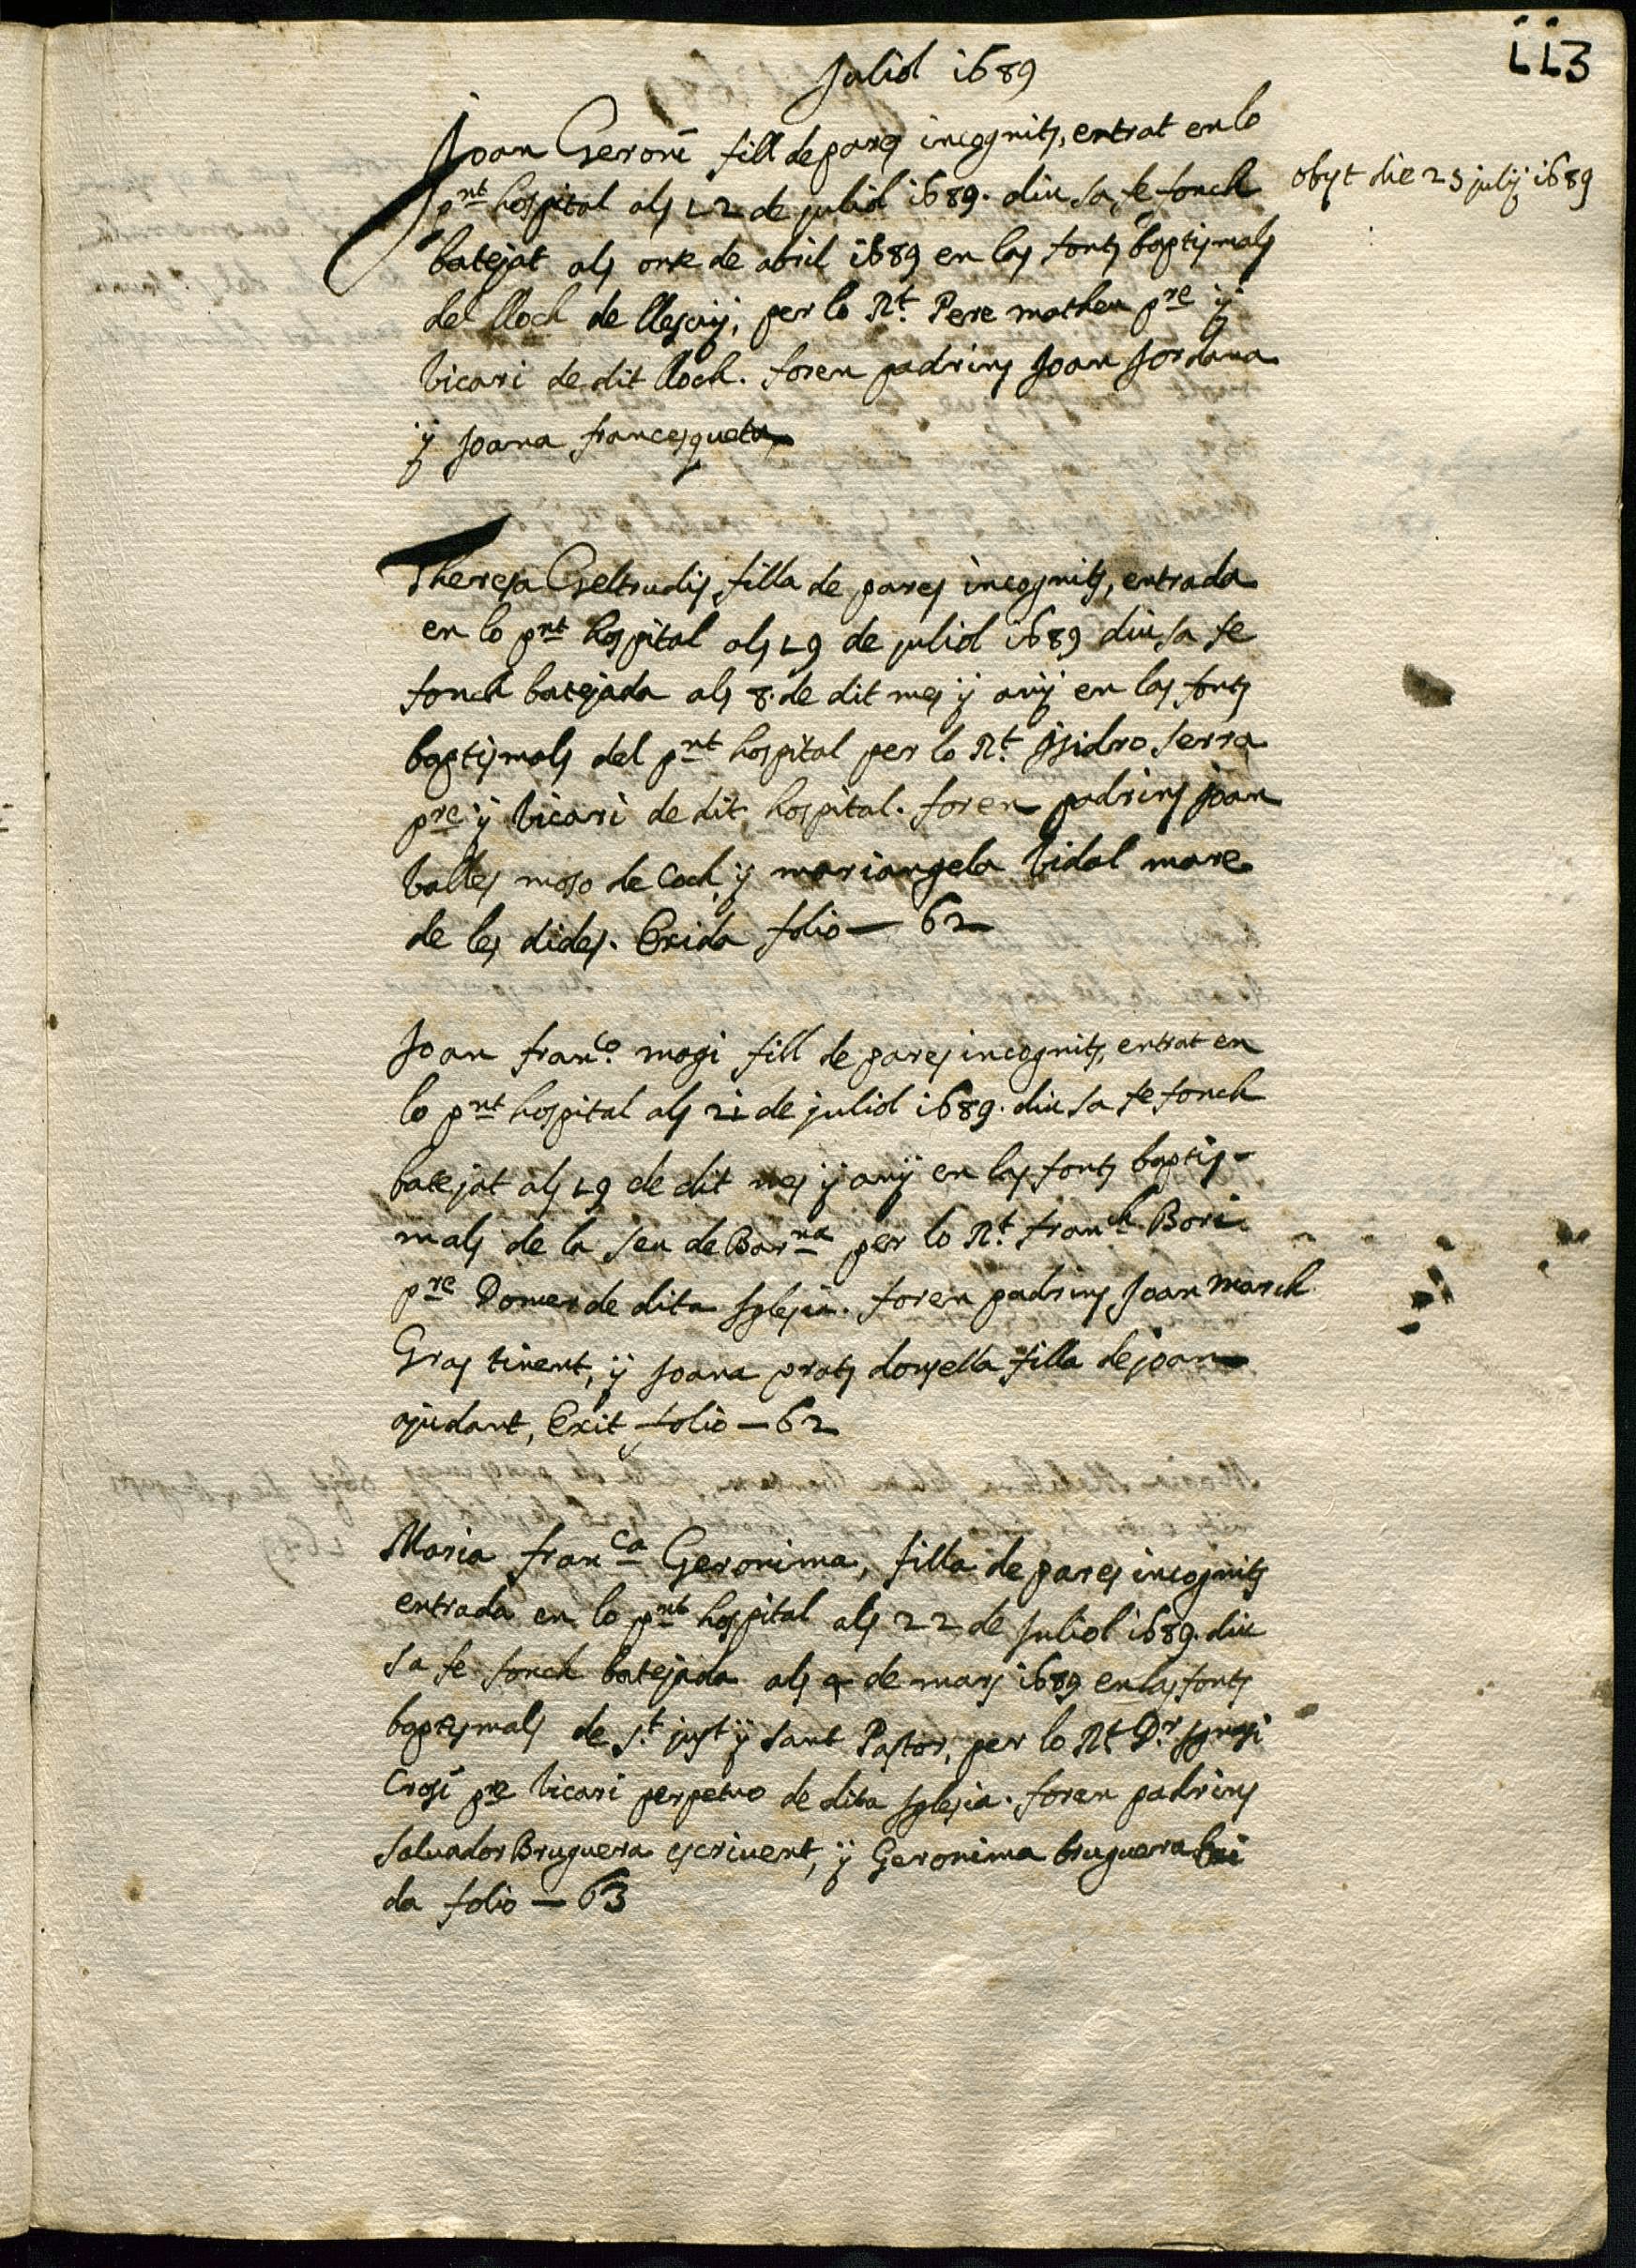 113
Juliol 1689
Joan Geroni fill de pares incognits, entrat en lo
pnt hospital als 12 de juliol 1689. diu sa fe fonch
batejat als onze de abril 1689 en las fonts baptismals
del lloch de llesuy, per lo Rt. Pere matheu pre y
vicari de dit lloch. foren padrins Joan Jordana
y Joana francesqueta
obyt die 23 julij 1689
Theresa Geltrudis filla de pares incognits, entrada
en lo pnt hospital als 19 de juliol 1689 diu sa fe
fonch batejada als 8. de dit mes y any en las fonts
baptismals del pnt hospital per lo Rt. Isidro serra
pre y vicari de dit hospital. foren padrins joan
valles moso de Coch y mariangela vidal mare
de les dides. Exida folio — 62
Joan franco. magi fill de pares incognits, entrat en
lo pnt hospital als 21 de juliol 1689. diu sa fe fonch
batejat als 19 de dit mes y any en las fonts baptis-
mals de la seu de Barna per lo Rt. franch Bori
pre Domer de dita Iglesia. foren padrins Joan March
Gras tinent, y Joana prats donsella filla de joan
ajudant, Exit folio — 62
Maria franca Geronima, filla de pares incognits
entrada en lo pnt hospital als 22 de Juliol 1689. diu
sa fe fonch batejada als de mars 1689 en las fonts
baptismals de St. just y sant Pastor, per lo Rt Dr. Ignasi
pre vicari perpetuo de dita Iglesia. foren padrins
salvador Bruguera escrivent, y Geronima bruguera Exi
da folio — 63